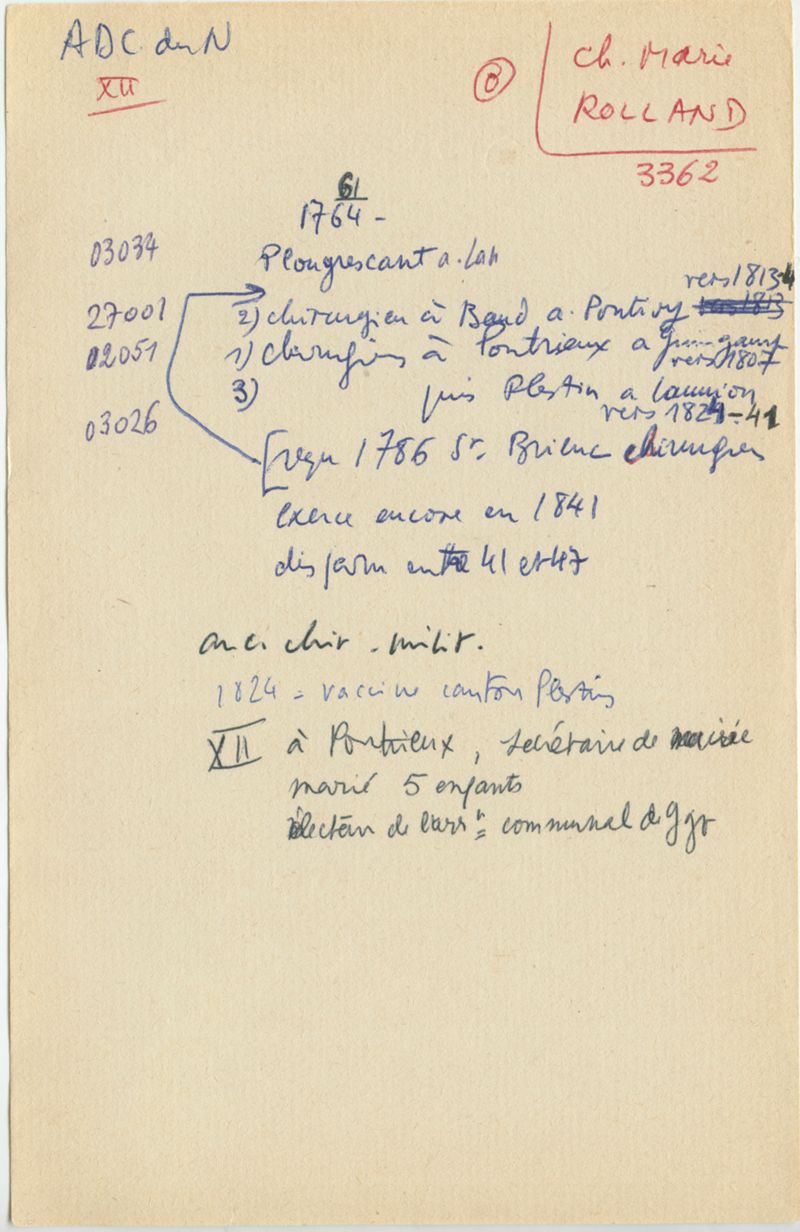 ADC. du N
XII
B
Ch. Marie
ROLLAND
3362
61
1764 -
03034 Plougrescant a. Lan
vers 1813-4
27001 2) chirurgien à Baud a. Pontivy
02051 1) Chirurgien à Pontrieux a Guingamp
vers 1807
3) puis Plestin a Lannion
vers 1824-41
03026 [reçu 1786 St. Brieuc chirurgien
exerce encore en 1841
disparu entre 41 et 47
anc. chir. milit.
1824 = vaccine canton Plestin
XII à Pontrieux, secrétaire de mairie
marié 5 enfants
électeur de l'arrt communal de Ggp